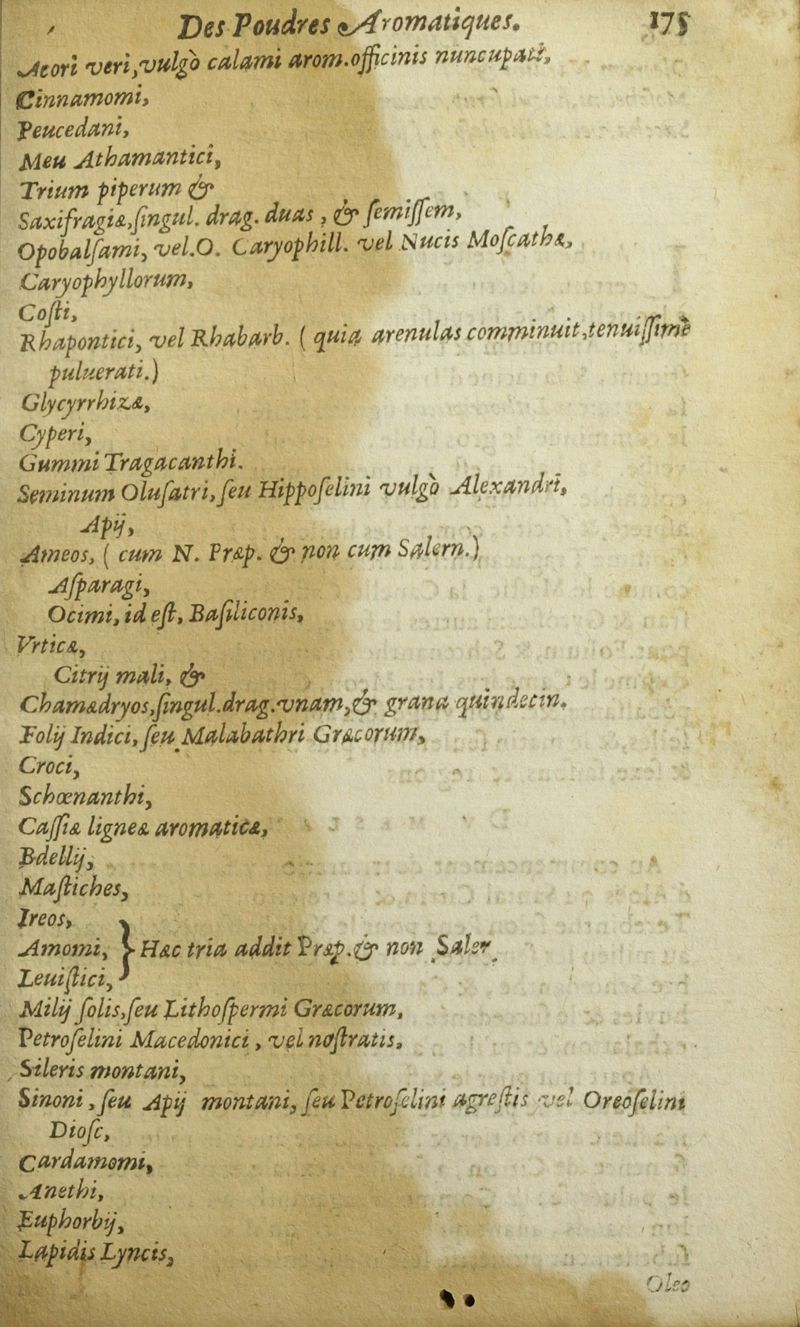 Des Poudres Aromatiques. 175
Acori veri, vulgò calami arom. officinis nuncupati,
Cinnamomi,
Peucedani,
Meu Athamantici,
Trium piperum &
Saxifragiæ, singul. drag. duas, & semissem,
Opobalsami, vel.O. Caryophill. vel Nucis Moscathæ,
Caryophyllorum,
Costi,
Rhapontici, vel Rhabarb. ( quia arenulas comminuit, tenuissimè
puluerati.)
Glycyrrhizæ,
Cyperi,
Gummi Tragacanthi.
Seminum Olusatri, seu Hipposelini vulgò Alexandri,
Apij,
Ameos, ( cum N. Præp. & non cum Salern.)
Asparagi,
Ocimi, id est, Basiliconis,
Vrticæ,
Citrij mali, &
Chamædryos, singul. drag. vnam, & grana quindecim.
Folij Indici, seu Malabathri Græcorum,
Croci,
Schœnanthi,
Cassiæ ligneæ aromaticæ,
Bdellij,
Mastiches,
Ireos,
Amomi, } Hæc tria addit Præp. & non Saler
Leuistici,
Milij solis, seu Lithospermi Græcorum,
Petroselini Macedonici, vel nostratis,
Sileris montani,
Sinoni, seu Apij montani, seu Petroselini agrestis vel Oreoselini
Diosc,
Cardamomi,
Anethi,
Euphorbij,
Lapidis Lyncis,
Oleo